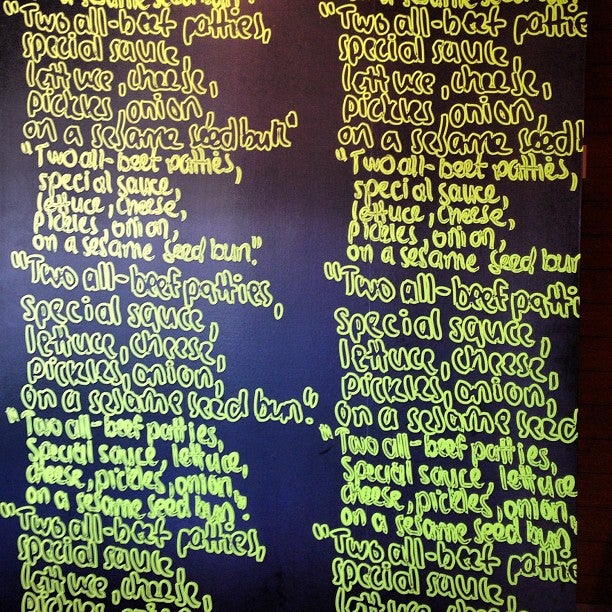 on a sesame seed bun."
"Two all-beef patties,
special sauce
lettuce, cheese,
pickles, onion,
on a sesame seed bun"
"Two all-beef patties,
special sauce,
lettuce, cheese,
pickles, onion,
on a sesame seed bun."
"Two all-beef patties,
special sauce,
lettuce, cheese,
pickles, onion,
on a sesame seed bun."
"Two all-beef patties,
special sauce, lettuce,
cheese, pickles, onion,
on a sesame seed bun".
"Two all-beef patties,
special sauce
lettuce, cheese,
pickles, onion,
a sesame seed bun
"Two all-beef pattie
special sauce
lettuce, cheese,
pickles, onion,
on a sesame seed b
"Two all-beef patties,
special sauce,
lettuce, cheese,
pickles, onion,
on a sesame seed bun
"Two all-beef patti
special sauce,
lettuce, cheese,
pickles, onion,
on a sesame seed
"Two all-beef patties,
special sauce, lettuce
cheese, pickles, onion,
on a sesame seed bun
"Two all-beef pattie
special sauce
lettuce, cheese,